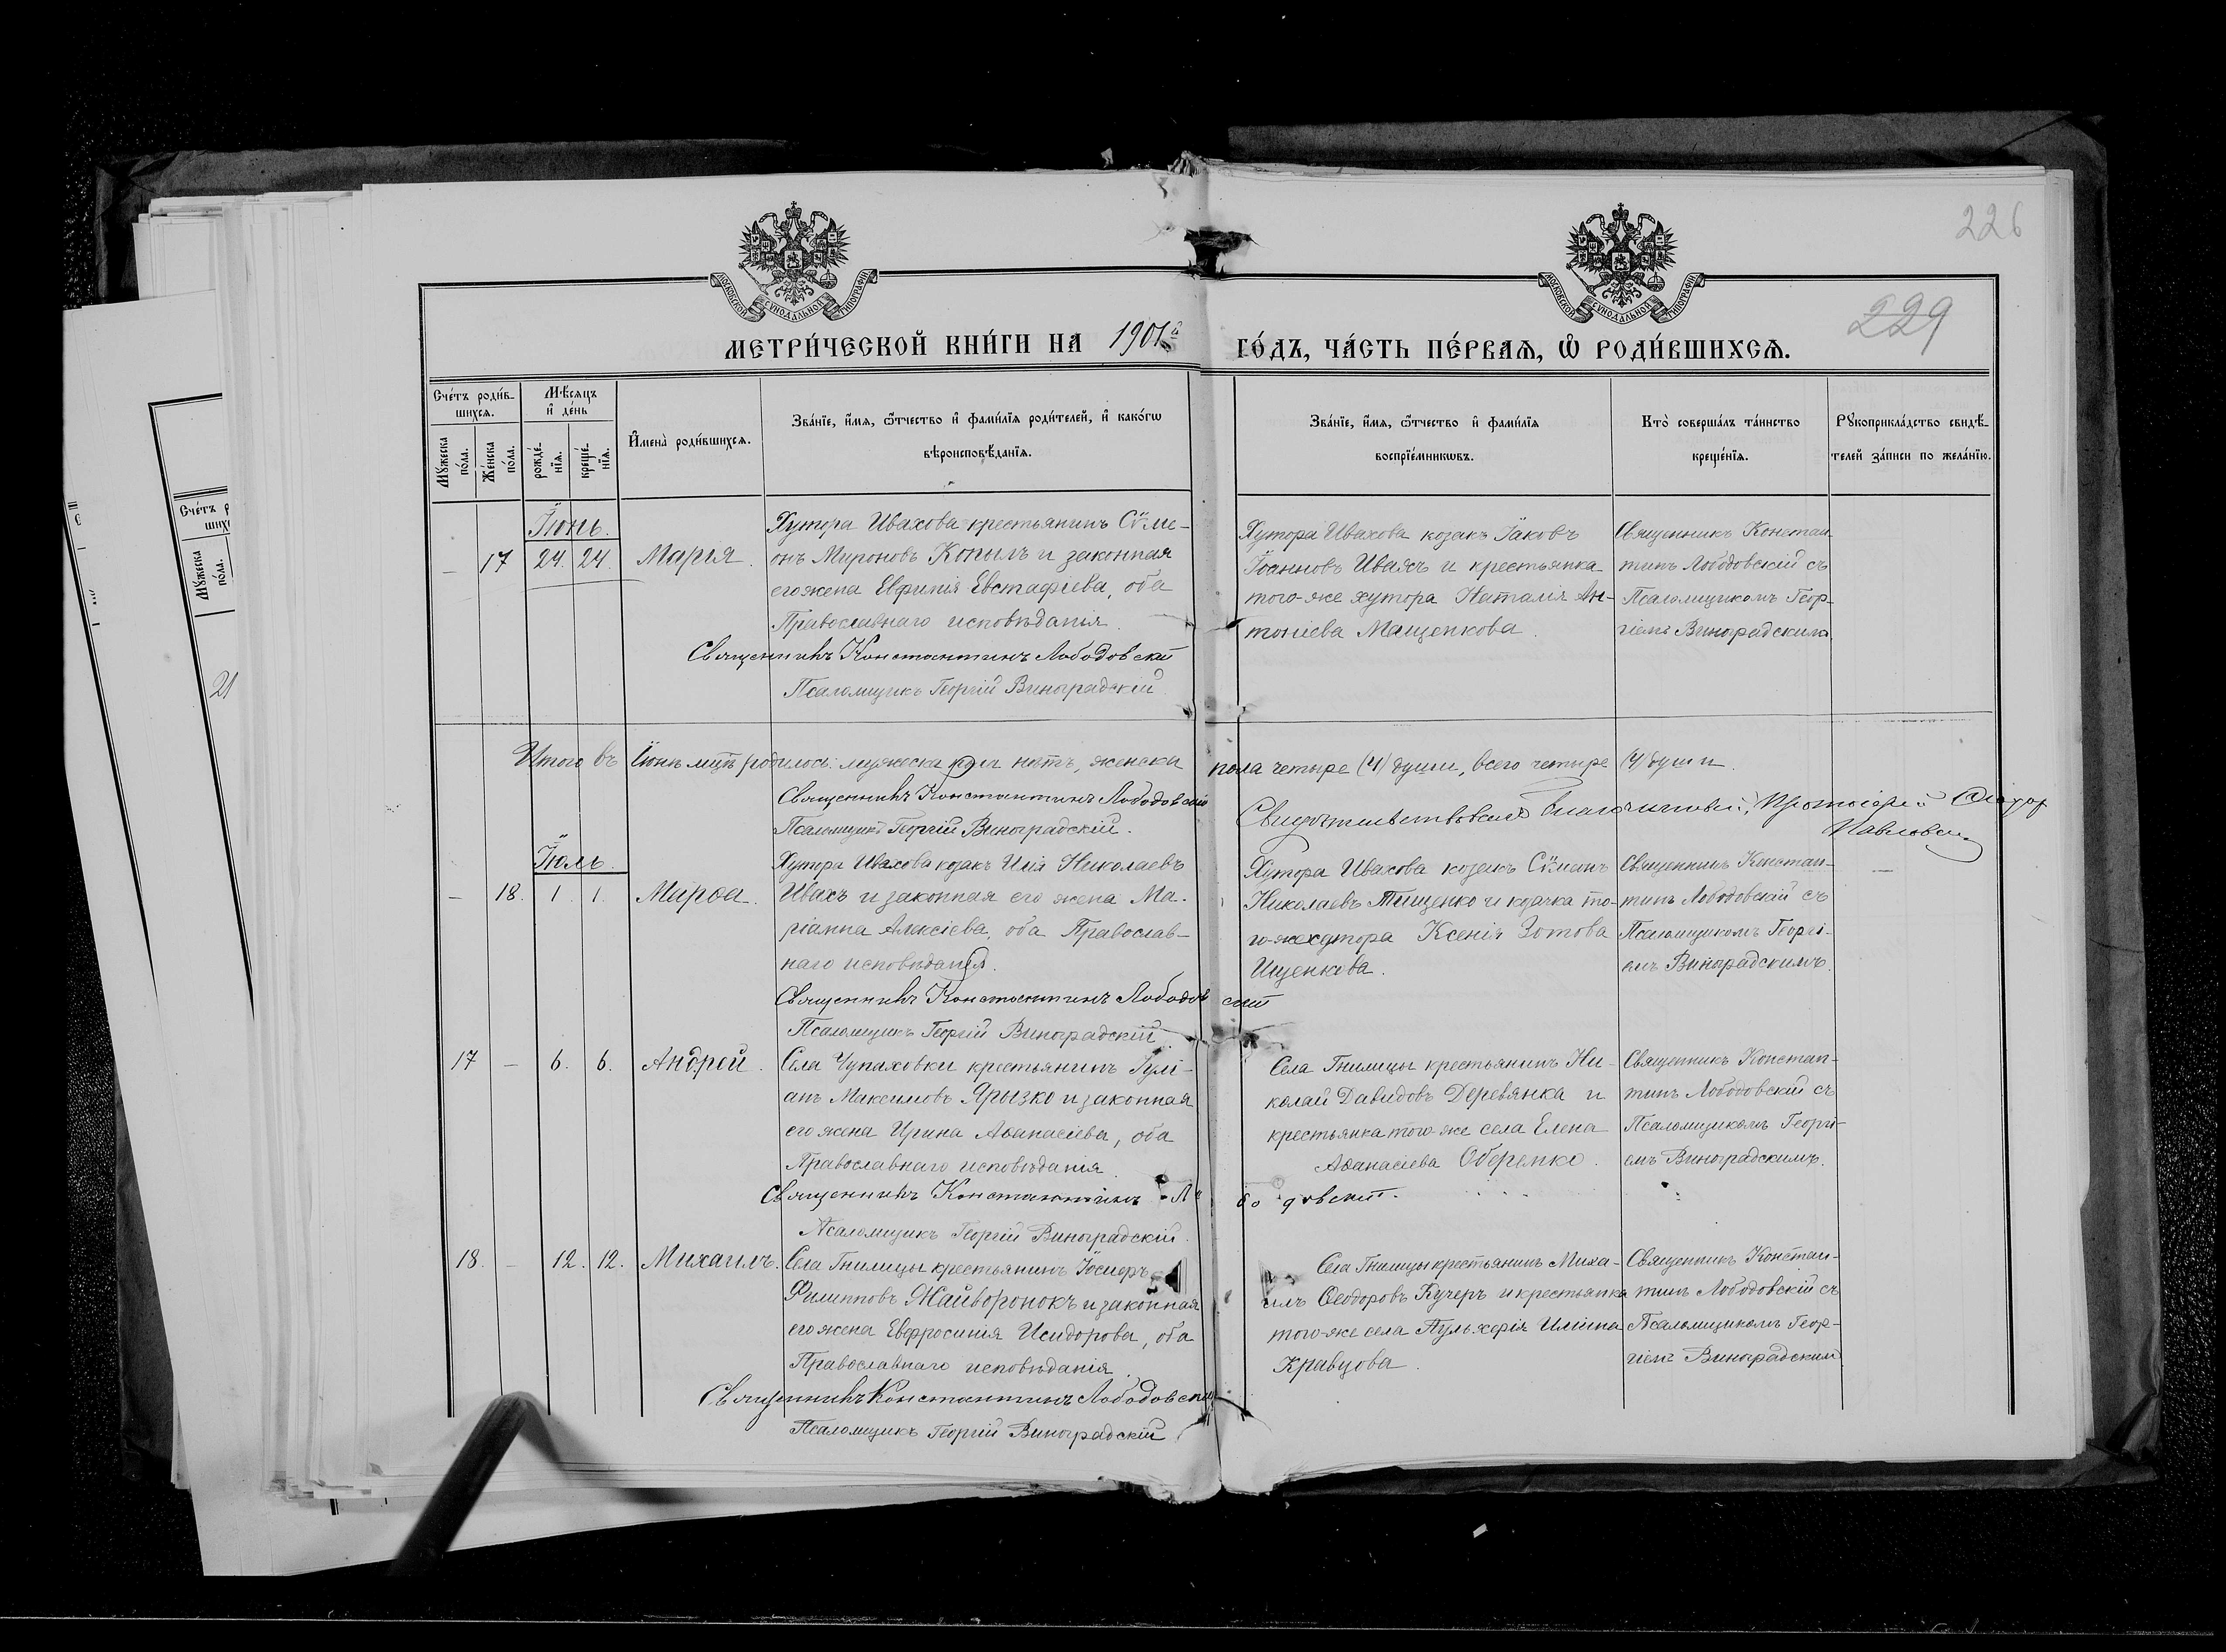 226
229
МОСКОВСКОЙ СѴНОДАЛЬНОЙ ТИПОГРАФІИ
МОСКОВСКОЙ СѴНОДАЛЬНОЙ ТИПОГРАФІИ
МЕТРИ́ЧЕСКОЙ КНИ́ГИ НА 1901й ГО́ДЪ, ЧА́СТЬ ПЕ́РВАѦ, Ѡ҆ РОДИ́ВШИХСѦ.
Сче́тъ роди́в-
шихсѧ.
Мꙋ́жеска
по́ла.
Же́нска
по́ла.
Мѣ́сѧцъ
и҆ де́нь
рожде́-
нїѧ.
креще́-
нїѧ.
И҆мена̀ роди́вшихсѧ.
Зва́нїе, и҆́мѧ, ѻ҆́тчество и҆ фами́лїѧ роди́телей, и҆ како́гѡ
вѣроисповѣ́данїѧ.
Зва́нїе, и҆́мѧ, ѻ҆́тчество и҆ фами́лїѧ
воспрїе́мникѡвъ.
Кто̀ соверша́лъ та́инство
креще́нїѧ.
Рꙋкоприкла́дство свидѣ́-
телей за́писи по жела́нїю.
Сче́тъ
Мꙋ́жеска
по́ла.
21
Іюнь.
– 17 24. 24. Марія.
Хутора Ивахова крестьянинъ Сѵме-
онъ Мироновъ Копылъ и законная
его жена Евфимія Евстафіева, оба
Православнаго исповѣданія.
Священникъ Константинъ Лободовскій
Псаломщикъ Георгій Виноградскій
Хутора Ивахова козакъ Іаковъ
Іоанновъ Ивахъ и крестьянка
того-же хутора Наталія Ан-
тоніева Мащенкова.
Священникъ Констан-
тинъ Лободовскій съ
Псаломщикомъ Геор-
гіемъ Виноградскимъ
Итого въ Іюнѣ мцѣ родилось: мужеска пола нѣтъ, женска пола четыре (4) души, всего четыре (4) души.
Священникъ Константинъ Лободовскій
Псаломщикъ Георгій Виноградскій.
Свидѣтельствовалъ Благочинный, Протоіерей
Павловскій
Іюль.
– 18. 1. 1. Марѳа.
Хутора Ивахова козакъ Илія Николаевъ
Ивахъ и законная его жена Ма-
ріанна Алексіева, оба Православ-
наго исповѣданія.
Священникъ Константинъ Лободовскій
Псаломщикъ Георгій Виноградскій.
Хутора Ивахова козакъ Сѵмеонъ
Николаевъ Тищенко и козачка то-
го-же хутора Ксенія Зотова
Ищенкова.
Священникъ Констан-
тинъ Лободовскій съ
Псаломщикомъ Георгі-
емъ Виноградскимъ.
17 – 6. 6. Андрей.
Села Чупаховки крестьянинъ Іулі-
анъ Максимовъ Ярызко и законная
его жена Ирина Аѳанасіева, оба
Православнаго исповѣданія
Священникъ Константинъ Лободовскій.
Псаломщикъ Георгій Виноградскій.
Села Гнилицы крестьянинъ Ни-
колай Давидовъ Деревянка и
крестьянка того-же села Елена
Аѳанасіева Оберемко.
Священникъ Констан-
тинъ Лободовскій съ
Псаломщикомъ Георгі-
емъ Виноградскимъ.
18. – 12. 12. Михаилъ.
Села Гнилицы крестьянинъ Іосифъ
Филипповъ Жайворонокъ и законная
его жена Евфросинія Исидорова, оба
Православнаго исповѣданія.
Священникъ Константинъ Лободовскій
Псаломщикъ Георгій Виноградскій.
Села Гнилицы крестьянинъ Миха-
илъ Ѳеодоровъ Кучеръ и крестьянка
того-же села Пульхерія Иліина
Кравцова.
Священникъ Констан-
тинъ Лободовскій съ
Псаломщикомъ Геор-
гіемъ Виноградскимъ